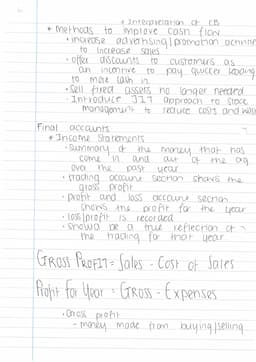 * Interpretation of CB
* methods to improve cash flow
• increase advertising/promotion activities
to increase sales
• offer discounts to customers as
an incentive to pay quicker leading
to more cash in
• Sell fixed assets no longer needed
• Introduce JIT approach to stock
management to reduce costs and
Final accounts
* Income Statements
• Summary of the money that has
come in and out of the
over the past year
• trading account section shows the
gross profit
• profit and loss account section
shows the profit for the year
• loss/profit is recorded
• should be a true reflection of
the trading for that year
GROSS PROFIT = Sales - Cost of Sales
Profit for Year = GROSS - Expenses
• Gross profit
- money made from buying/selling